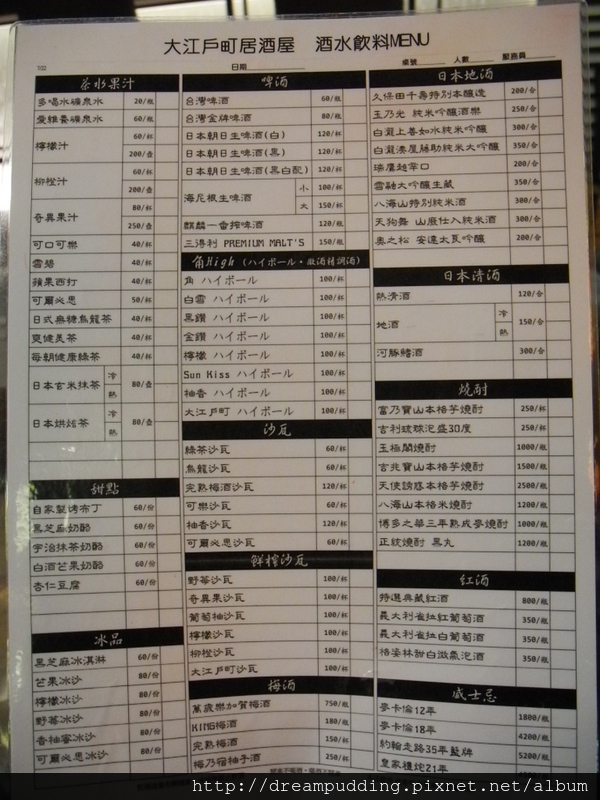 大江戶町居酒屋 酒水飲料MENU
7/22 日期 桌號 人數 服務員
茶水果汁
多喝水礦泉水 20/瓶
愛維養礦泉水 60/瓶
檸檬汁 60/杯
200/壺
柳橙汁 60/杯
200/壺
奇異果汁 80/杯
250/壺
可口可樂 40/杯
雪碧 40/杯
蘋果西打 40/杯
可爾必思 50/杯
日式無糖烏龍茶 40/杯
爽健美茶 40/杯
每朝健康綠茶 40/杯
日本玄米抹茶 冷 熱 80/壺
日本烘焙茶 冷 熱 80/壺
甜點
自家製烤布丁 60/份
黑芝麻奶酪 60/份
宇治抹茶奶酪 60/份
白酒芒果奶酪 60/份
杏仁豆腐 60/份
冰品
黑芝麻冰淇淋 60/份
芒果冰沙 80/份
檸檬冰沙 80/份
野莓冰沙 80/份
香柚蜜冰沙 80/份
可爾必思冰沙 80/份
啤酒
台灣啤酒 60/瓶
台灣金牌啤酒 80/瓶
日本朝日生啤酒(白) 120/杯
日本朝日生啤酒(黑) 120/杯
日本朝日生啤酒(黑白配) 120/杯
海尼根生啤酒 小 100/杯
大 150/杯
麒麟一番搾啤酒 120/瓶
三得利 PREMIUM MALT'S 150/瓶
角High (ハイボール・微酒精調酒)
角 ハイボール 100/杯
白雪 ハイボール 100/杯
黑鑽 ハイボール 100/杯
金鑽 ハイボール 100/杯
檸檬 ハイボール 100/杯
Sun Kiss ハイボール 100/杯
柚香 ハイボール 100/杯
大江戶町 ハイボール 100/杯
沙瓦
綠茶沙瓦 60/杯
烏龍沙瓦 60/杯
完熟梅酒沙瓦 120/杯
可樂沙瓦 60/杯
柚香沙瓦 120/杯
可爾必思沙瓦 60/杯
鮮榨沙瓦
野莓沙瓦 100/杯
奇異果沙瓦 100/杯
葡萄柚沙瓦 100/杯
檸檬沙瓦 100/杯
柳橙沙瓦 100/杯
大江戶町沙瓦 100/杯
梅酒
萬歲樂加賀梅酒 750/瓶
KING梅酒 180/瓶
完熟梅酒 150/杯
梅乃宿柚子酒 250/杯
日本地酒
久保田千壽特別本釀造 200/合
玉乃光 純米吟釀酒樂 250/合
白瀧上善如水純米吟釀 300/合
白瀧湊屋藤助純米大吟釀 350/合
瑞鷹超辛口 200/合
雲融大吟釀生藏 350/合
八海山特別純米酒 300/合
天狗舞 山廢仕入純米酒 300/合
奧之松 安達太良吟釀 200/合
日本清酒
熱清酒 120/合
地酒 冷 熱 150/合
河豚鰭酒 300/合
燒酎
富乃寶山本格芋燒酎 250/杯
吉利琉球泡盛30度 250/杯
玉極閣燒酎 1000/瓶
吉兆寶山本格芋燒酎 1500/瓶
天使誘惑本格芋燒酎 2500/瓶
八海山本格米燒酎 1200/瓶
博多之華三年熟成麥燒酎 1000/瓶
正紋燒酎 黑丸 1200/瓶
紅酒
特選典藏紅酒 800/瓶
義大利雀拉紅葡萄酒 350/瓶
義大利雀拉白葡萄酒 350/瓶
格姿林甜白微氣泡酒 350/瓶
威士忌
麥卡倫12年 1800/瓶
麥卡倫18年 4200/瓶
約翰走路35年藍牌 5200/瓶
皇家禮炮21年
http://dreampudding.pixnet.net/album